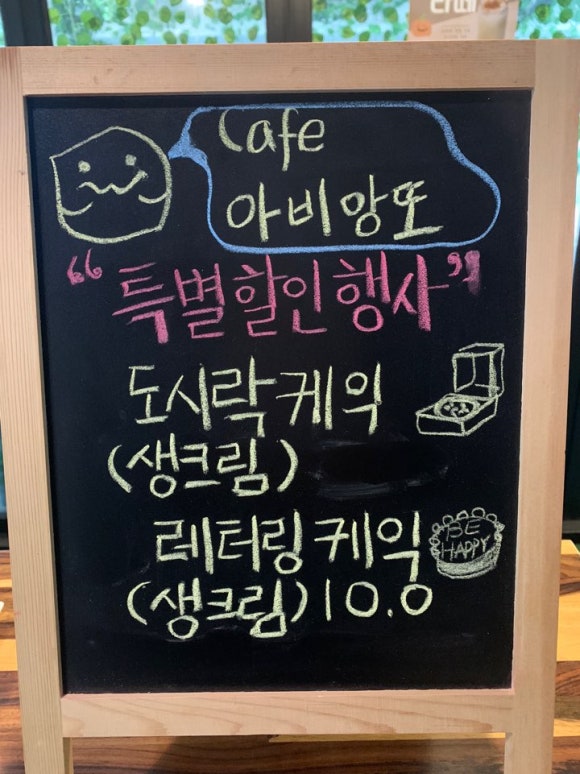 Cafe
아비앙또
"특별할인행사"
도시락케익
(생크림)
레터링케잌
(생크림) 10.0
BE
HAPPY